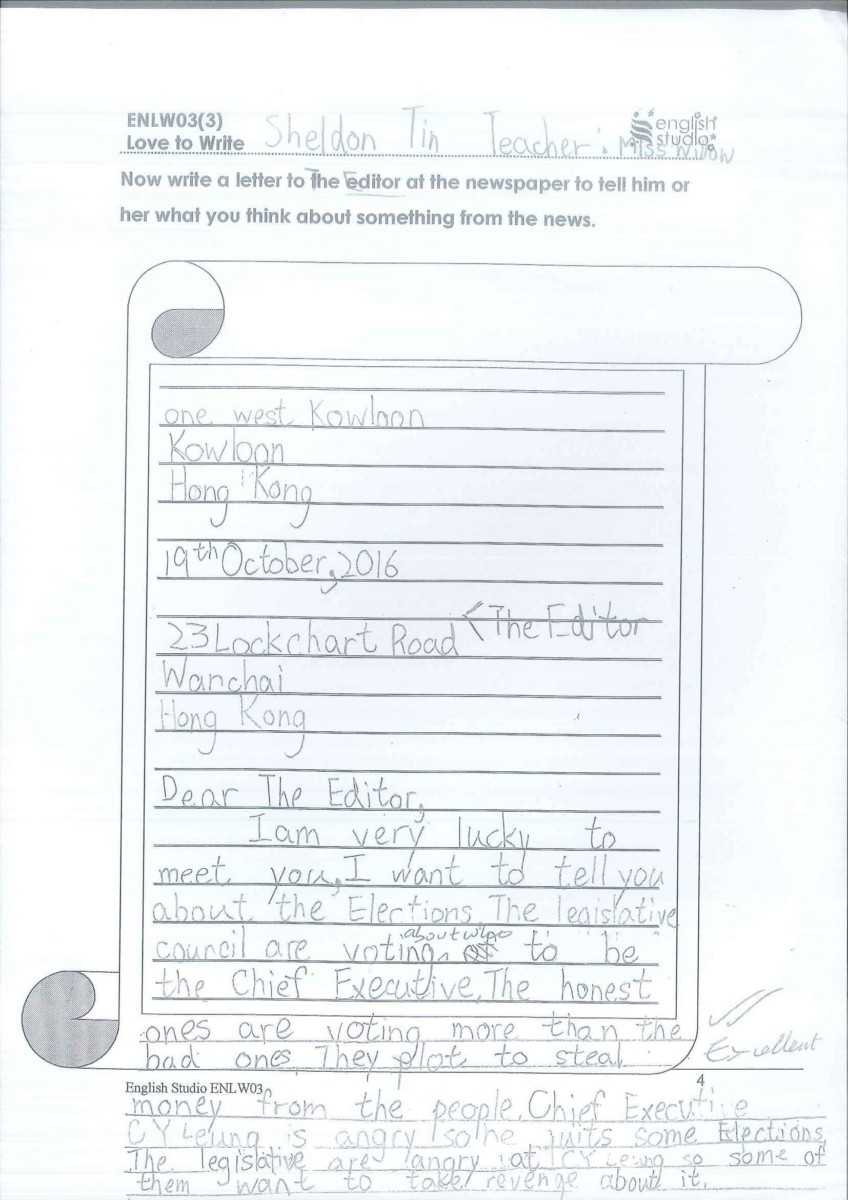 ENLW03(3)
Love to Write Sheldon Tin Teacher: Miss Willow
english studio
Now write a letter to The Editor at the newspaper to tell him or
her what you think about something from the news.
one west Kowloon
Kowloon
Hong Kong
19th October, 2016
The Editor
23 Lockchart Road
Wanchai
Hong Kong
Dear The Editor,
I am very lucky to
meet you, I want to tell you
about the Elections. The legislative
council are voting about who to be
the Chief Executive. The honest
ones are voting more than the
bad ones. They plot to steal
Excellent
English Studio ENLW03
4
money from the people. Chief Executive
CY Leung is angry so he quits some Elections.
The legislative are angry at CY Leung so some of
them want to take revenge about it.